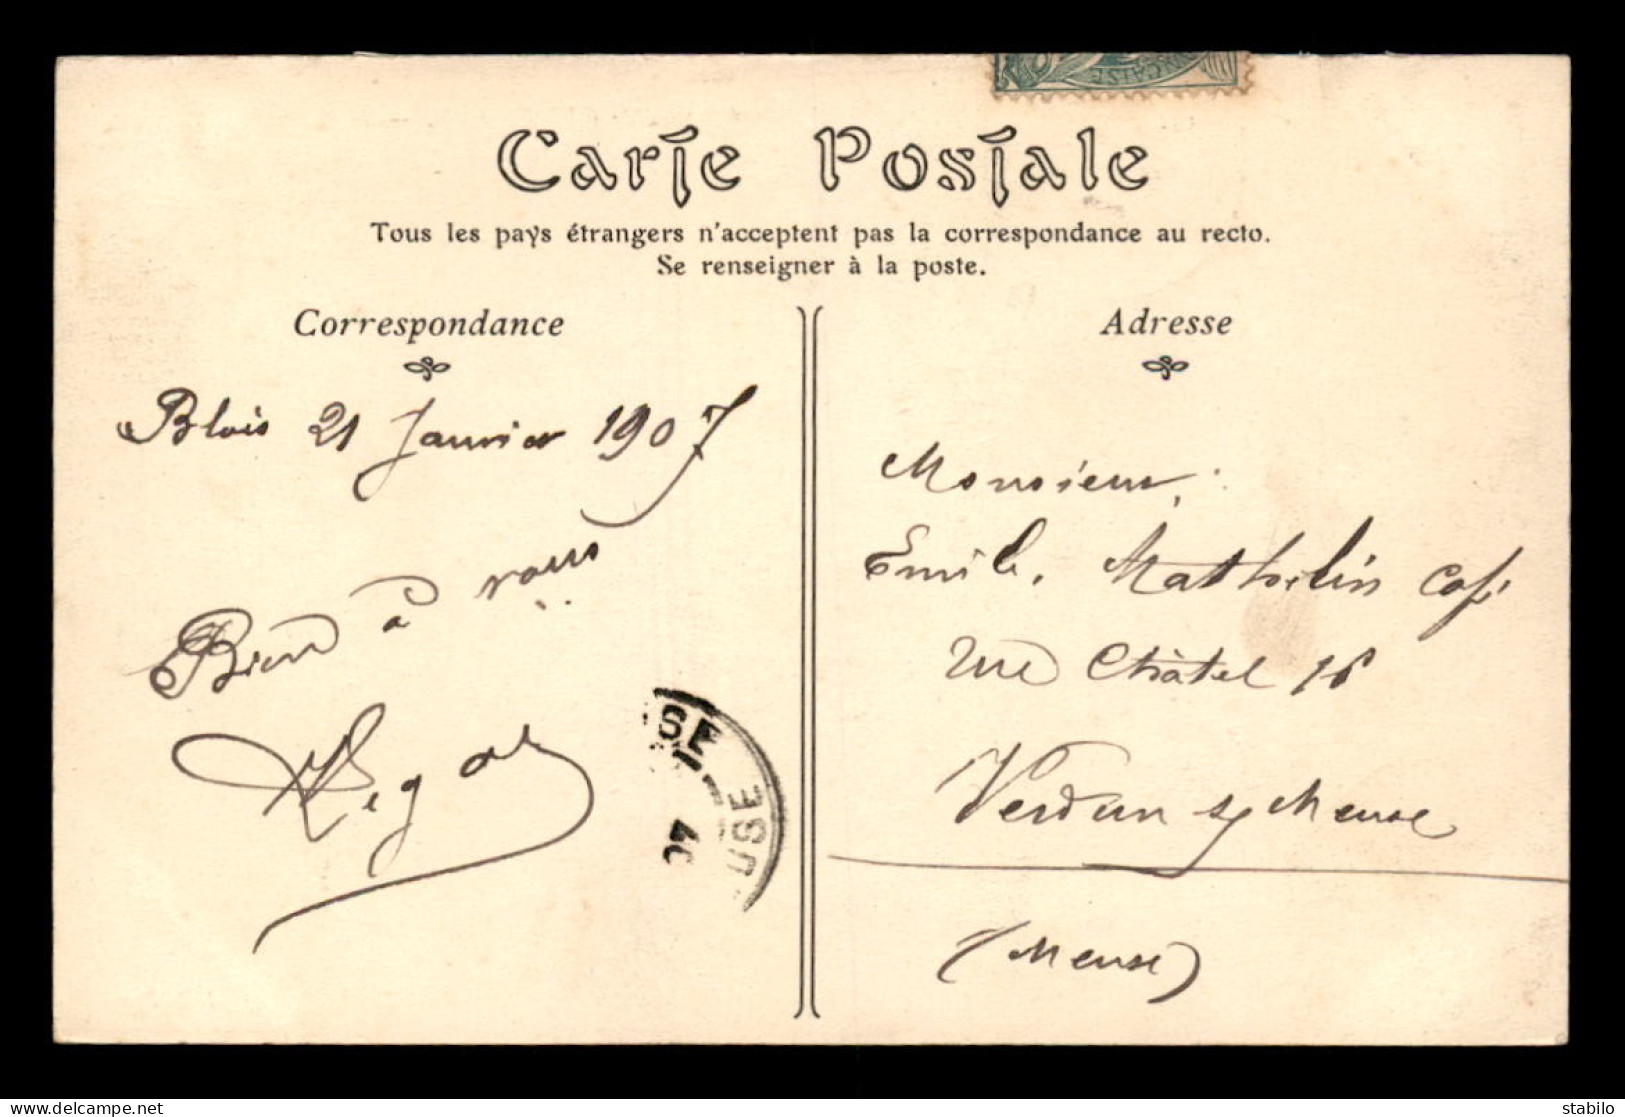 ÇAISE
Carte Postale
Tous les pays étrangers n'acceptent pas la correspondance au recto.
Se renseigner à la poste.
Correspondance
Blois 21 Janvier 1907
Bien à vous
SE
USE
07
Adresse
Monsieur
Emile Mathelin
rue Châtel 16
Verdun s/ Meuse
(Meuse)
delcampe.net
stabilo